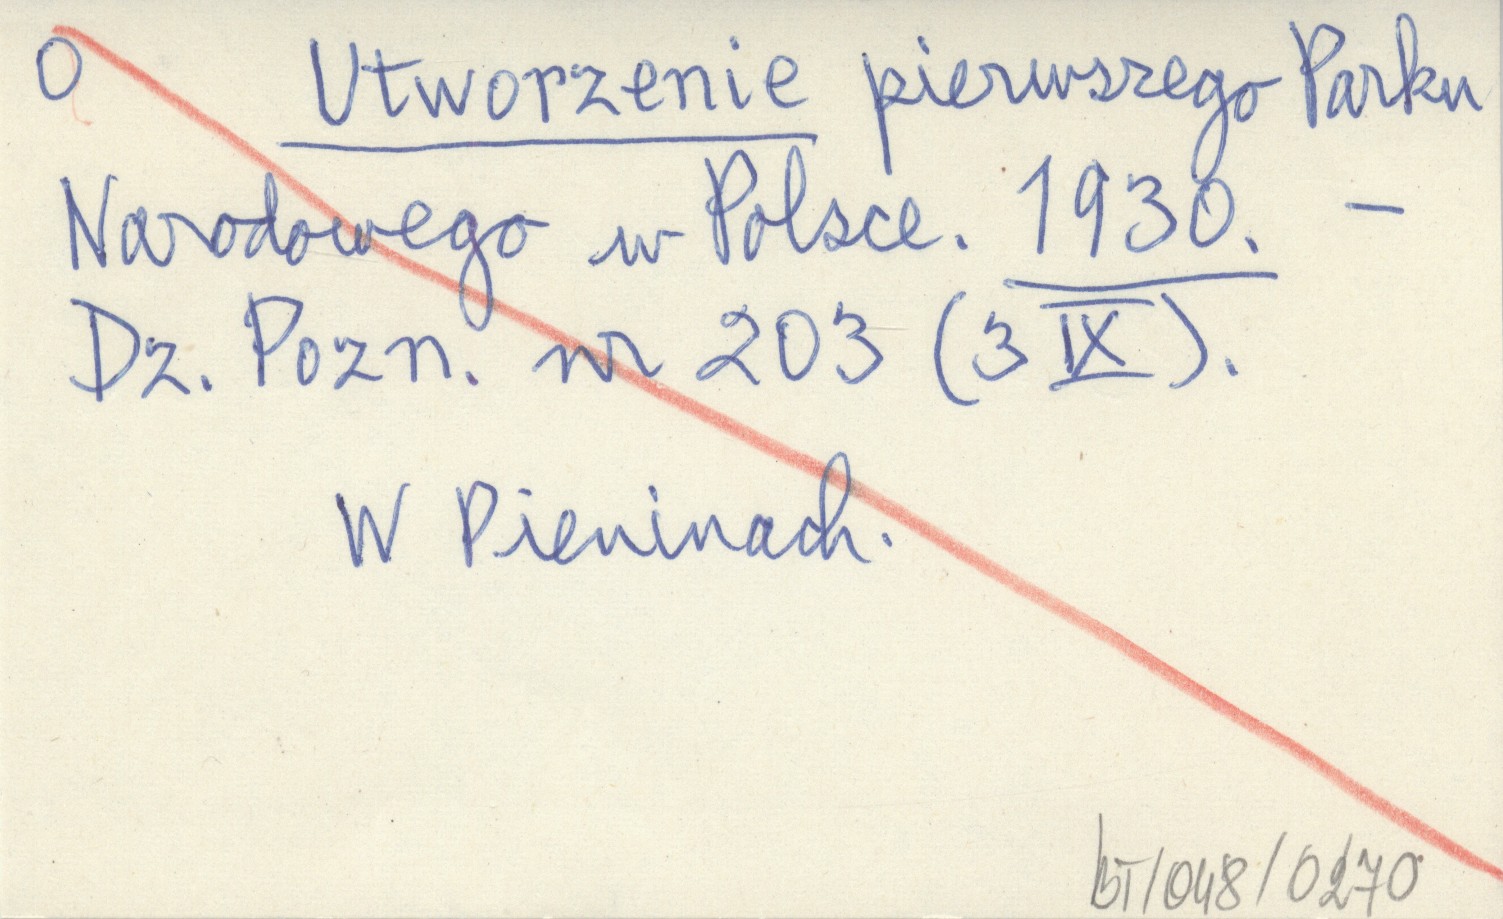 O Utworzenie pierwszego Parku
Narodowego w Polsce. 1930. –
Dz. Pozn. nr 203 (3 IX).
W Pieninach.
BT/048/0270